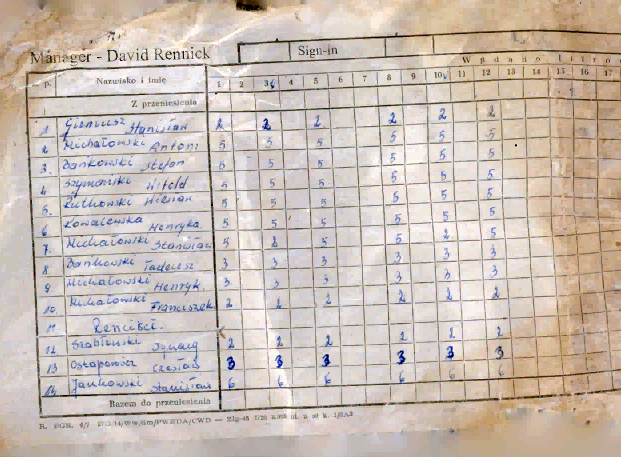 Manager - David Rennick Sign-in
p. Nazwisko i imię 1 2 3 4 5 6 7 8 9 10 11 12 13 14 15 16 17
Z przeniesienia
1 Stanisław 2 2 2 2 2 2
2 Michałowski Antoni 5 5 5 5 5 5
3. Bańkowski Stefan 5 5 5 5 5 5
4 Szymański Witold 5 5 5 5 5 5
5. Rutkowski 5 5 5 5 5 5
6 Kowalewska Henryka 5 5 5 5 5 5
7. Michałowski Stanisław 5 2 5 5 2 5
8 Bańkowski Tadeusz 3 3 3 3 3 3
9 Michałowski Henryk 3 3 3 3 3 3
10. Michałowski Franciszek 2 2 2 2 2 2
11 Renciści.
12 Szabłowski Ignacy 2 2 2 2 2 2
13 Ostapowicz Czesław 3 3 3 3 3 3
14 Jankowski Stanisław 6 6 6 6 6 6
Razem do przeniesienia
R. PGR. 4/7